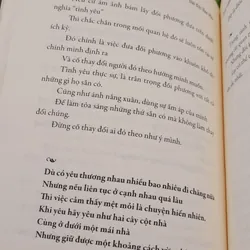 nghĩa "tình yêu"
Thì chắc chắn trong mối quan hệ đó sẽ luôn tồn tại
ích kỷ.
Đó chính là việc đưa đối phương vào khuôn khổ do
chính mình định ra
Và cố thay đổi người đó theo hướng mình muốn.
Tình yêu thực sự, là trân trọng đối phương với
những gì họ sẵn có.
Cũng như ánh nắng xuân, dùng sự ấm áp của mình
Để làm tỏa sáng những thứ sẵn có mà không thay
đổi chúng.
Đừng cố thay đổi ai đó theo như ý mình.
Dù có yêu thương nhau nhiều bao nhiêu đi chăng nữa
Nhưng nếu liên tục ở cạnh nhau quá lâu
Thì việc cảm thấy mệt mỏi là chuyện hiển nhiên.
Khi yêu hãy yêu như hai cây cột nhà
Cùng ở dưới một mái nhà
Nhưng giữ được một khoảng cách